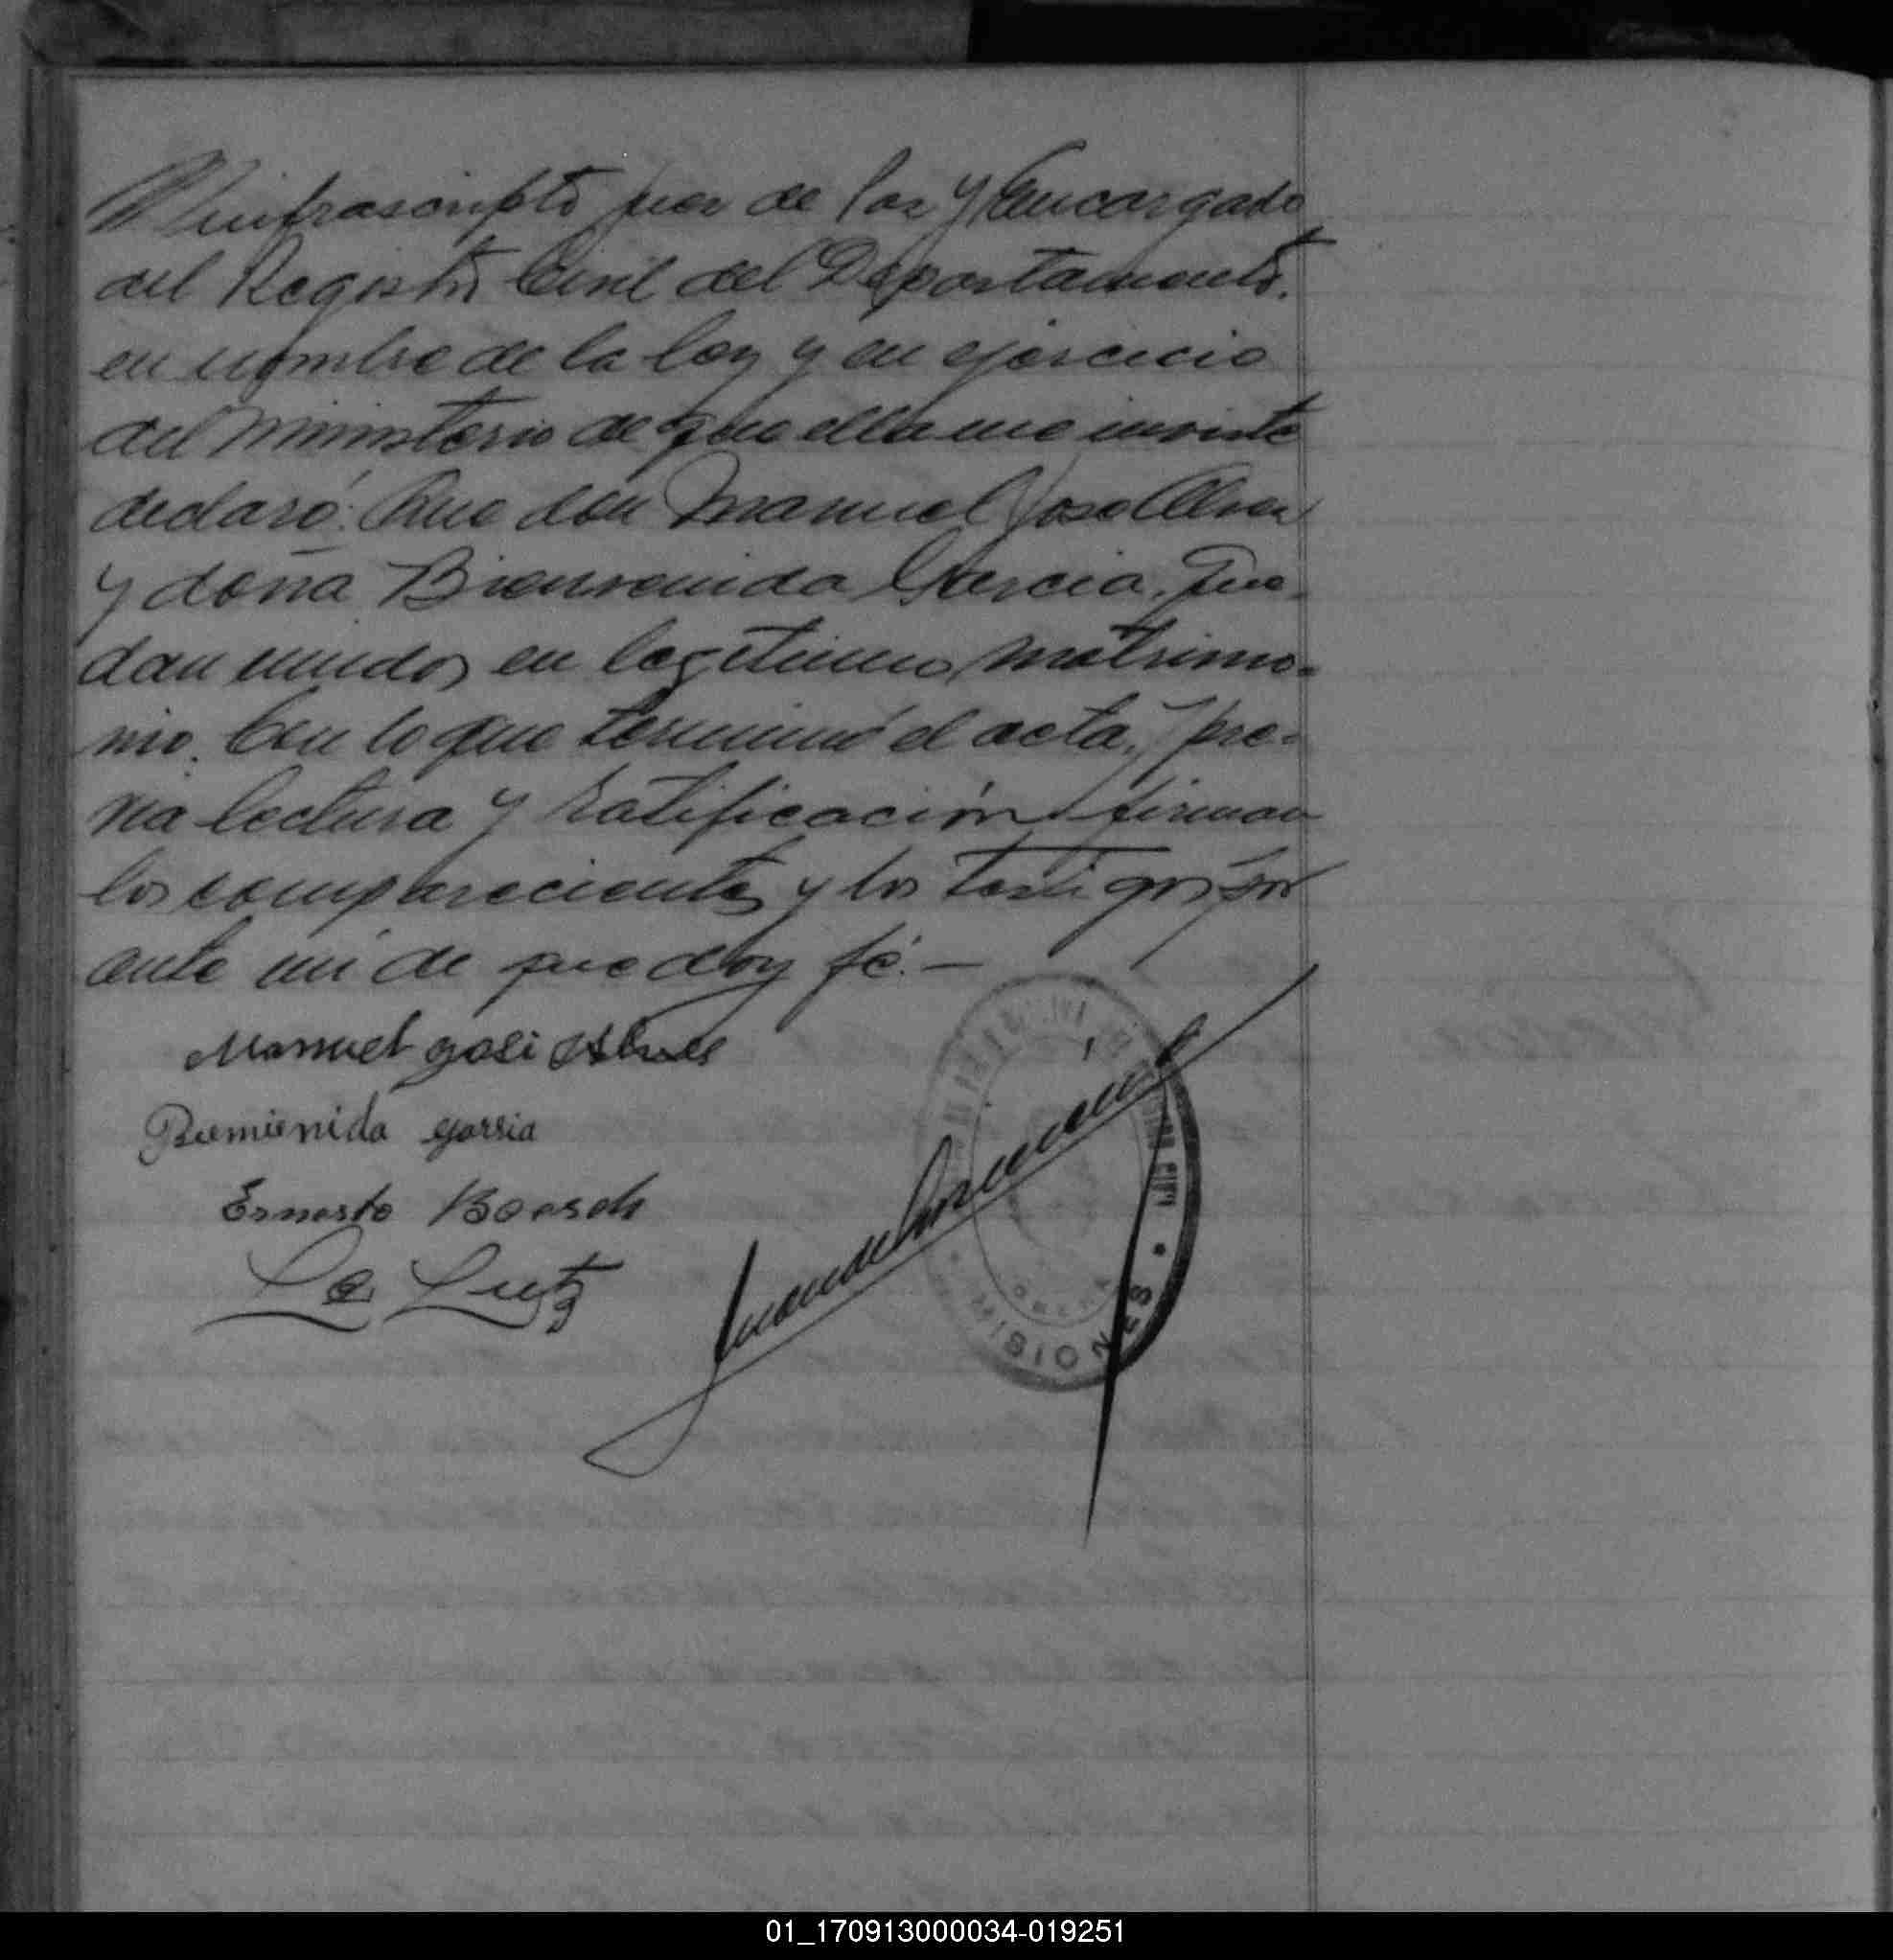 El infrascripto Juez de Paz y Encargado
del Registro Civil del Departamento.
en nombre de la ley y en ejercicio
del ministerio de que ella me inviste
declaró: Que don Manuel José Alves
y doña Bienvenida Garcia, que-
dan unidos en legitimo matrimo-
nio. Con lo que terminó el acta, y pre-
via lectura y ratificación firman
los comparecientes y los testigos por
ante mi de que doy fé. —
Manuel José Alves
Biemienida garsia
Ernesto Boesch
Lutz
MISIONES
01_170913000034-019251